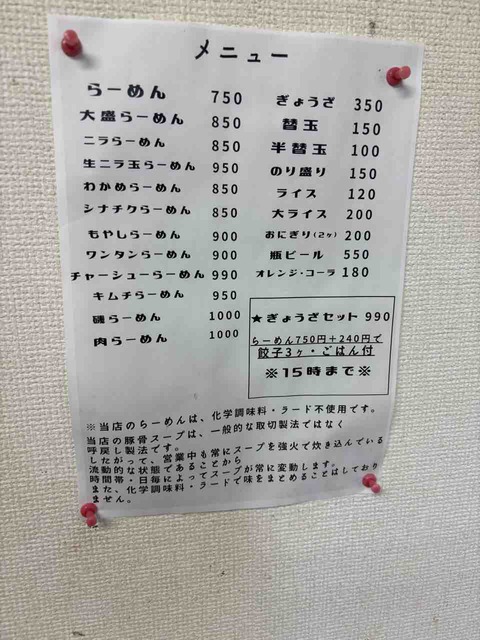 メニュー
らーめん 750
大盛らーめん 850
ニラらーめん 850
生ニラ玉らーめん 950
わかめらーめん 850
シナチクらーめん 850
もやしらーめん 900
ワンタンらーめん 900
チャーシューらーめん 990
キムチらーめん 950
磯らーめん 1000
肉らーめん 1000
ぎょうざ 350
替玉 150
半替玉 100
のり盛り 150
ライス 120
大ライス 200
おにぎり(2ヶ) 200
瓶ビール 550
オレンジ・コーラ 180
★ぎょうざセット 990
らーめん750円+240円で
餃子3ヶ・ごはん付
※15時まで※
※当店のらーめんは、化学調味料・ラード不使用です。
当店の豚骨スープは、一般的な取切製法ではなく
呼戻し製法です。
したがって、営業中も常にスープを強火で炊き込んでいる
流動的な状態であることから
時間帯・日毎によってスープが常に変動します。
また、化学調味料・ラードで味をまとめることはしており
ません。